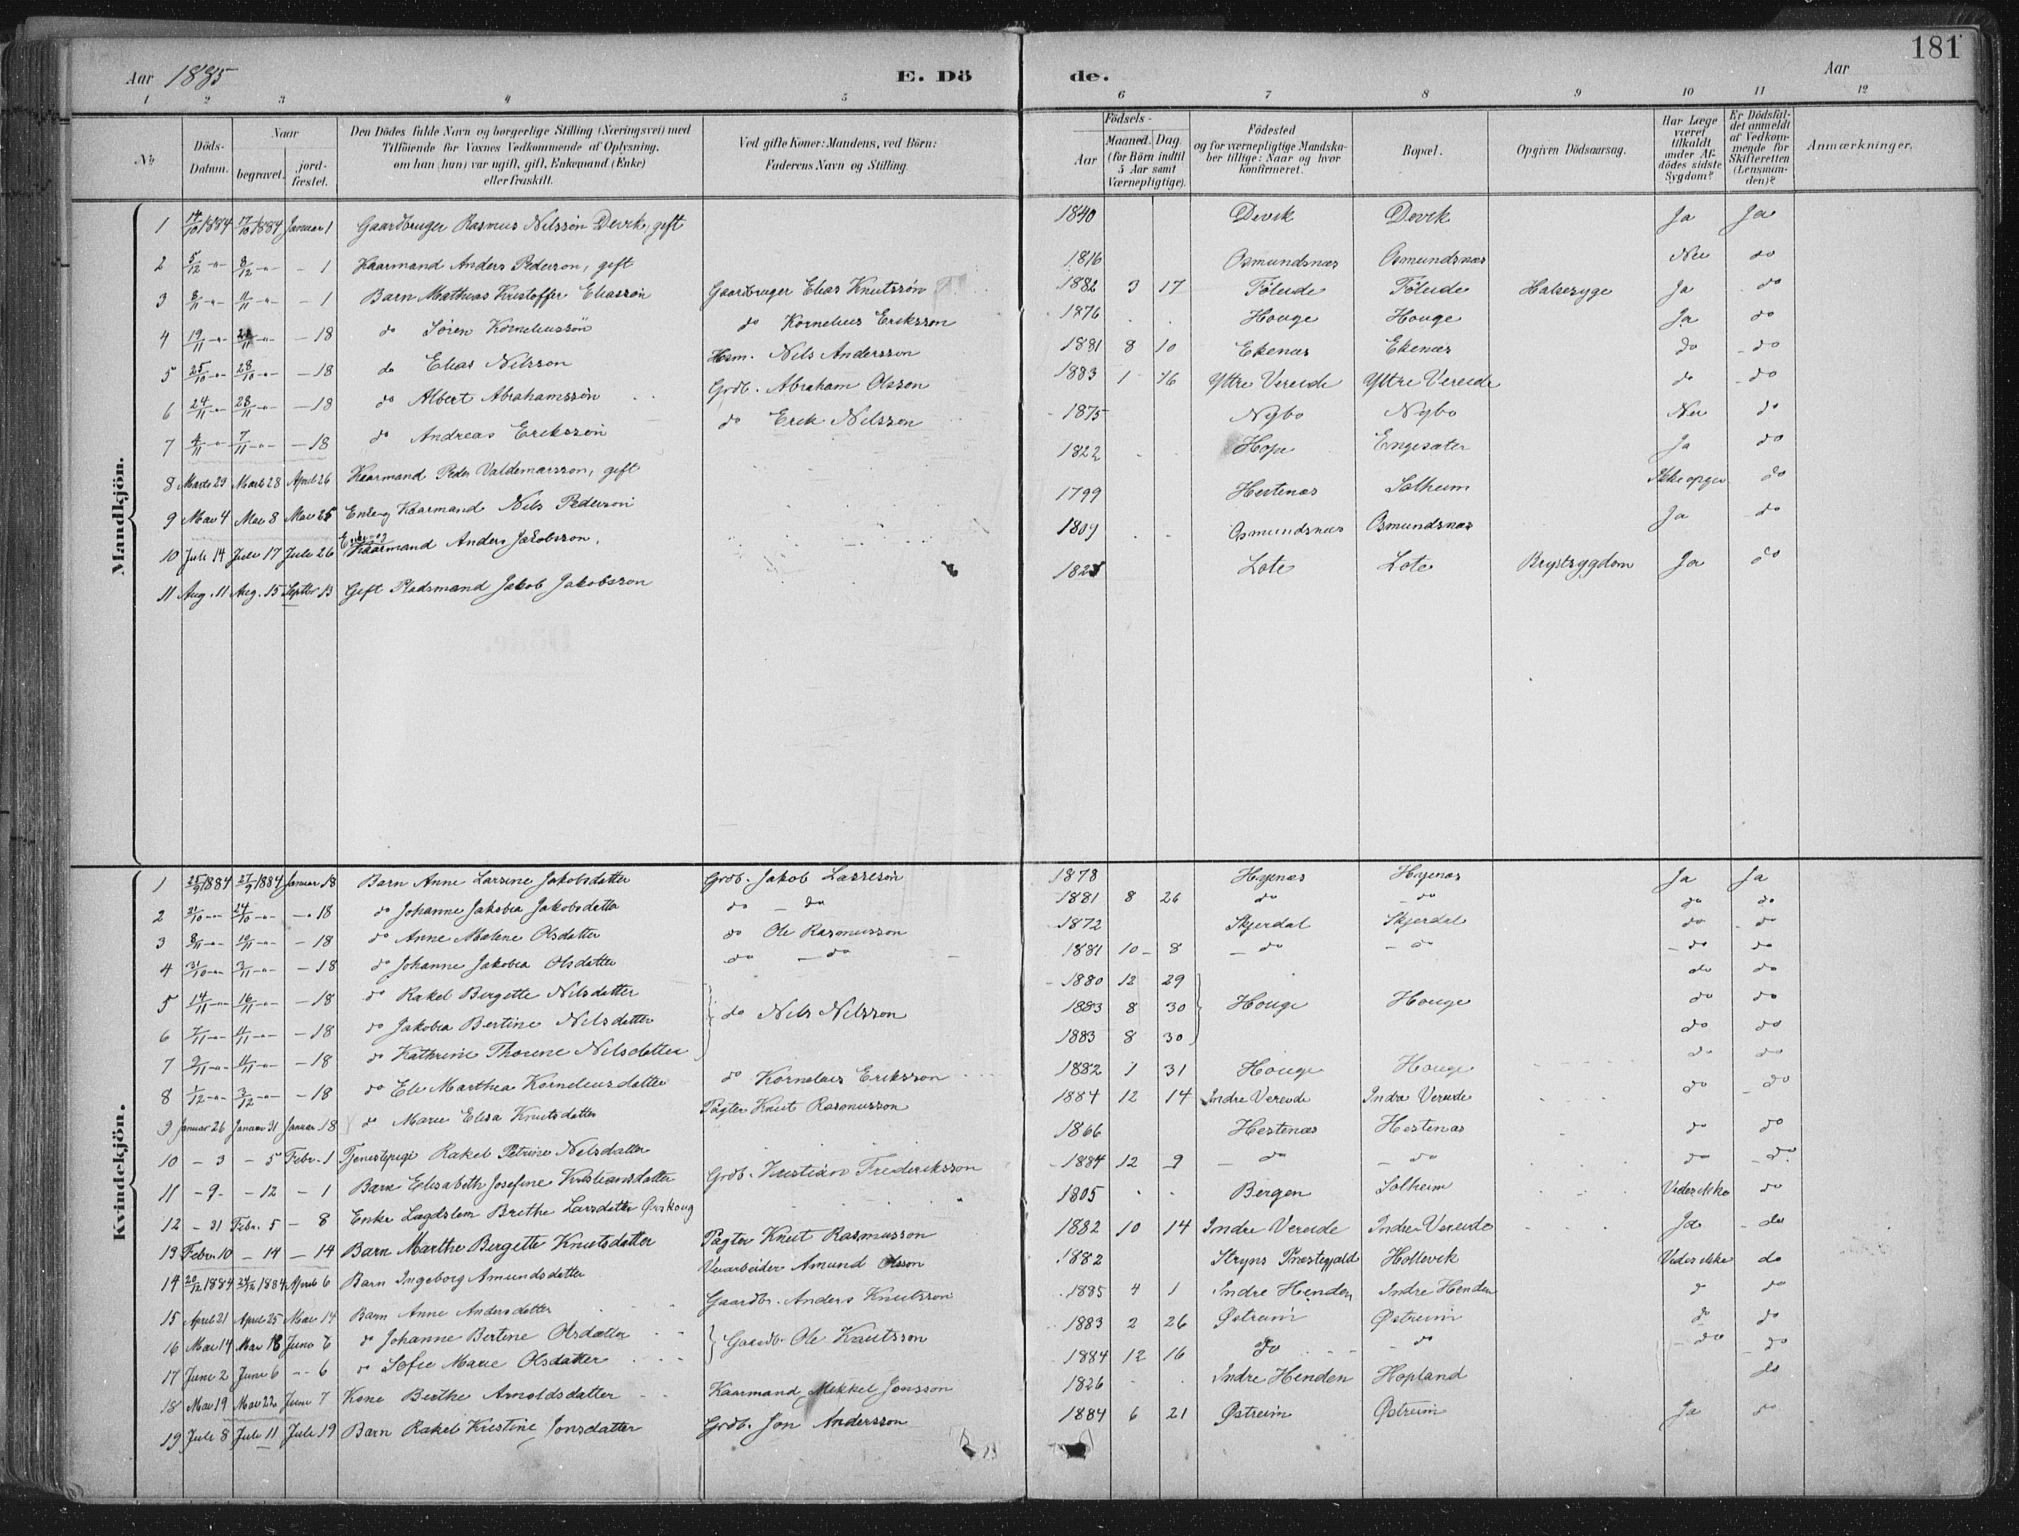 181
Aar 1885 E. Dö de. Aar
1 2 3 4 5 6 7 8 9 10 11 12
No
Döds-Datum.
Naar begravet. jord-fæstet.
Den Dödes fulde Navn og borgerlige Stilling (Næringsvei) med Tilföiende for Voxnes Vedkommende af Oplysning, om han (hun) var ugift, gift, Enkemand (Enke) eller fraskilt.
Ved gifte Koner: Mandens, ved Börn: Faderens Navn og Stilling.
Födsels-
Aar Maaned. Dag. (for Börn indtil 5 Aar samt Værnepligtige).
Födested og for værnepligtige Mandska-ber tillige: Naar og hvor konfirmeret.
Bopæl.
Opgiven Dödsaarsag.
Har Læge været tilkaldt under Af-dödes sidste Sygdom?
Er Dödsfal-det anmeldt af Vedkom-mende for Skifteretten (Lensman-den)?
Anmærkninger.
Mandkjön.
1 14/10 1884 17/10 1884 Januar 1 Gaardbruger Rasmus Nilssön Devik, gift 1840 Devik Devik Ja Ja
2 5/12 -"- 8/12 -"- - 1 Kaarmand Anders Pederson, gift 1816 Osmundsnæs Osmundsnæs Nei do
3 8/11 -"- 11/11 -"- - 1 Barn Mathias Kristoffer Eliassön Gaardbruger Elias Knutssön 1882 3 17 Tölude Tölude Halssyge Ja do
4 19/11 -"- -"- - 18 do Sören Korneliussön do Kornelius Eriksson 1876 Houge Houge Ja do
5 25/10 -"- 28/10 -"- - 18 do Elias Nilsson Hsm. Nils Andersson 1881 8 10 Ekenæs Ekenæs do do
6 24/11 -"- 28/11 -"- - 18 do Albert Abrahamssön Grdb. Abraham Olsson 1883 1 16 Yttre Vereide Yttre Vereide do do
7 4/11 -"- 7/11 -"- - 18 do Andreas Erikssön do Erik Nilsson 1875 Nybo Nybo Nei do
8 Marts 23 Marts 28 April 26 Kaarmand Peder Valdemarsson, gift 1822 Hope Engesæter Ja do
9 Mai 4 Mai 8 Mai 25 Enke og Kaarmand Nils Pederson 1799 Hestenæs Solheim Ikke opgiv do
10 Juli 14 Juli 17 Juli 26 Enke- og Kaarmand Anders Jakobsson, 1809 Osmundsnæs Osmundsnæs Ja do
11 Aug. 11 Aug. 15 Septbr 13 Gift Pladsmand Jakob Jakobsson 1825 Lote Lote Brystsygdom Ja do
Kvindekjön.
1 25/9 1884 27/9 1884 Januar 18 Barn Anne Larsine Jakobsdatter Grdb. Jakob Lassesön 1878 Hyenæs Hyenæs Ja Ja
2 21/10 -"- 24/10 -"- - 18 do Johanne Jakobia Jakobsdatter do - do 1881 8 26 do do do do
3 8/11 -"- 10/11 -"- - 18 do Anne Malene Olsdatter do Ole Rasmusson 1872 Skjerdal Skjerdal do do
4 31/10 -"- 3/11 -"- - 18 do Johanne Jakobia Olsdatter do - do 1881 10 8 do do do do
5 14/11 -"- 16/11 -"- - 18 do Rakel Bergette Nilsdatter 1880 12 29 do do
6 7/11 -"- 11/11 -"- - 18 do Jakobia Bertine Nilsdatter do Nils Nilsson 1883 8 30 Houge Houge do do
7 9/11 -"- 11/11 -"- - 18 do Kathrine Thorine Nilsdatter 1883 8 30 do do
8 1/12 -"- 3/12 -"- - 18 do Eli Marthea Korneliusdatter do Kornelius Eriksson 1882 1 31 Houge Houge do do
9 Januar 26 Januar 31 Januar 18 do Marie Elisa Knutsdatter Pagter Knut Rasmusson 1884 12 14 Indre Vereide Indre Vereide do do
10 - 3 - 5 Febr. 1 Tjenestepige Rakel Petrine Nilsdatter 1866 Hestenæs Hestenæs do do
11 - 9 - - 12 - 1 Barn Elisabeth Josefine Kristiansdatter Grdb. Kristian Frederiksson 1884 12 9 do do do do
12 - 31 Febr. 5 - 8 Enke Lægdslem Brithe Larsdatter Ørskoug 1805 Bergen Solheim Vides ikke do
13 Febr. 10 - 14 - 14 Barn Marthe Bergette Knutsdatter Pagter Knut Rasmusson 1882 10 14 Indre Vereide Indre Vereide Ja do
14 20/12 1884 24/12 1884 April 6 Barn Ingeborg Amundsdatter Veiarbeider Amund Olsson 1882 Stryns Præstegjald Hollevik Vides ikke do
15 April 21 April 25 Mai 14 Barn Anne Andersdatter Gaardbr. Anders Knutsson 1885 4 1 Indre Henden Indre Henden do do
16 Mai 14 Mai 18 Juni 6 do Johanne Bertine Olsdatter Gaardb. Ole Knutsson 1883 2 26 Østreim Østreim do do
17 Juni 2 Juni 6 - 6 do Sofie Marie Olsdatter 1884 12 16 do do do do
18 Mai 19 Mai 22 Juni 7 Kone Berthe Arnoldsdatter Kaarmand Mikkel Jonsson 1826 Indre Henden Hopland do
19 Juli 8 Juli 11 Juli 19 Barn Rakel Kristine Jonsdatter Grdb. Jon Andersson 1884 6 21 Østreim Østreim Ja do